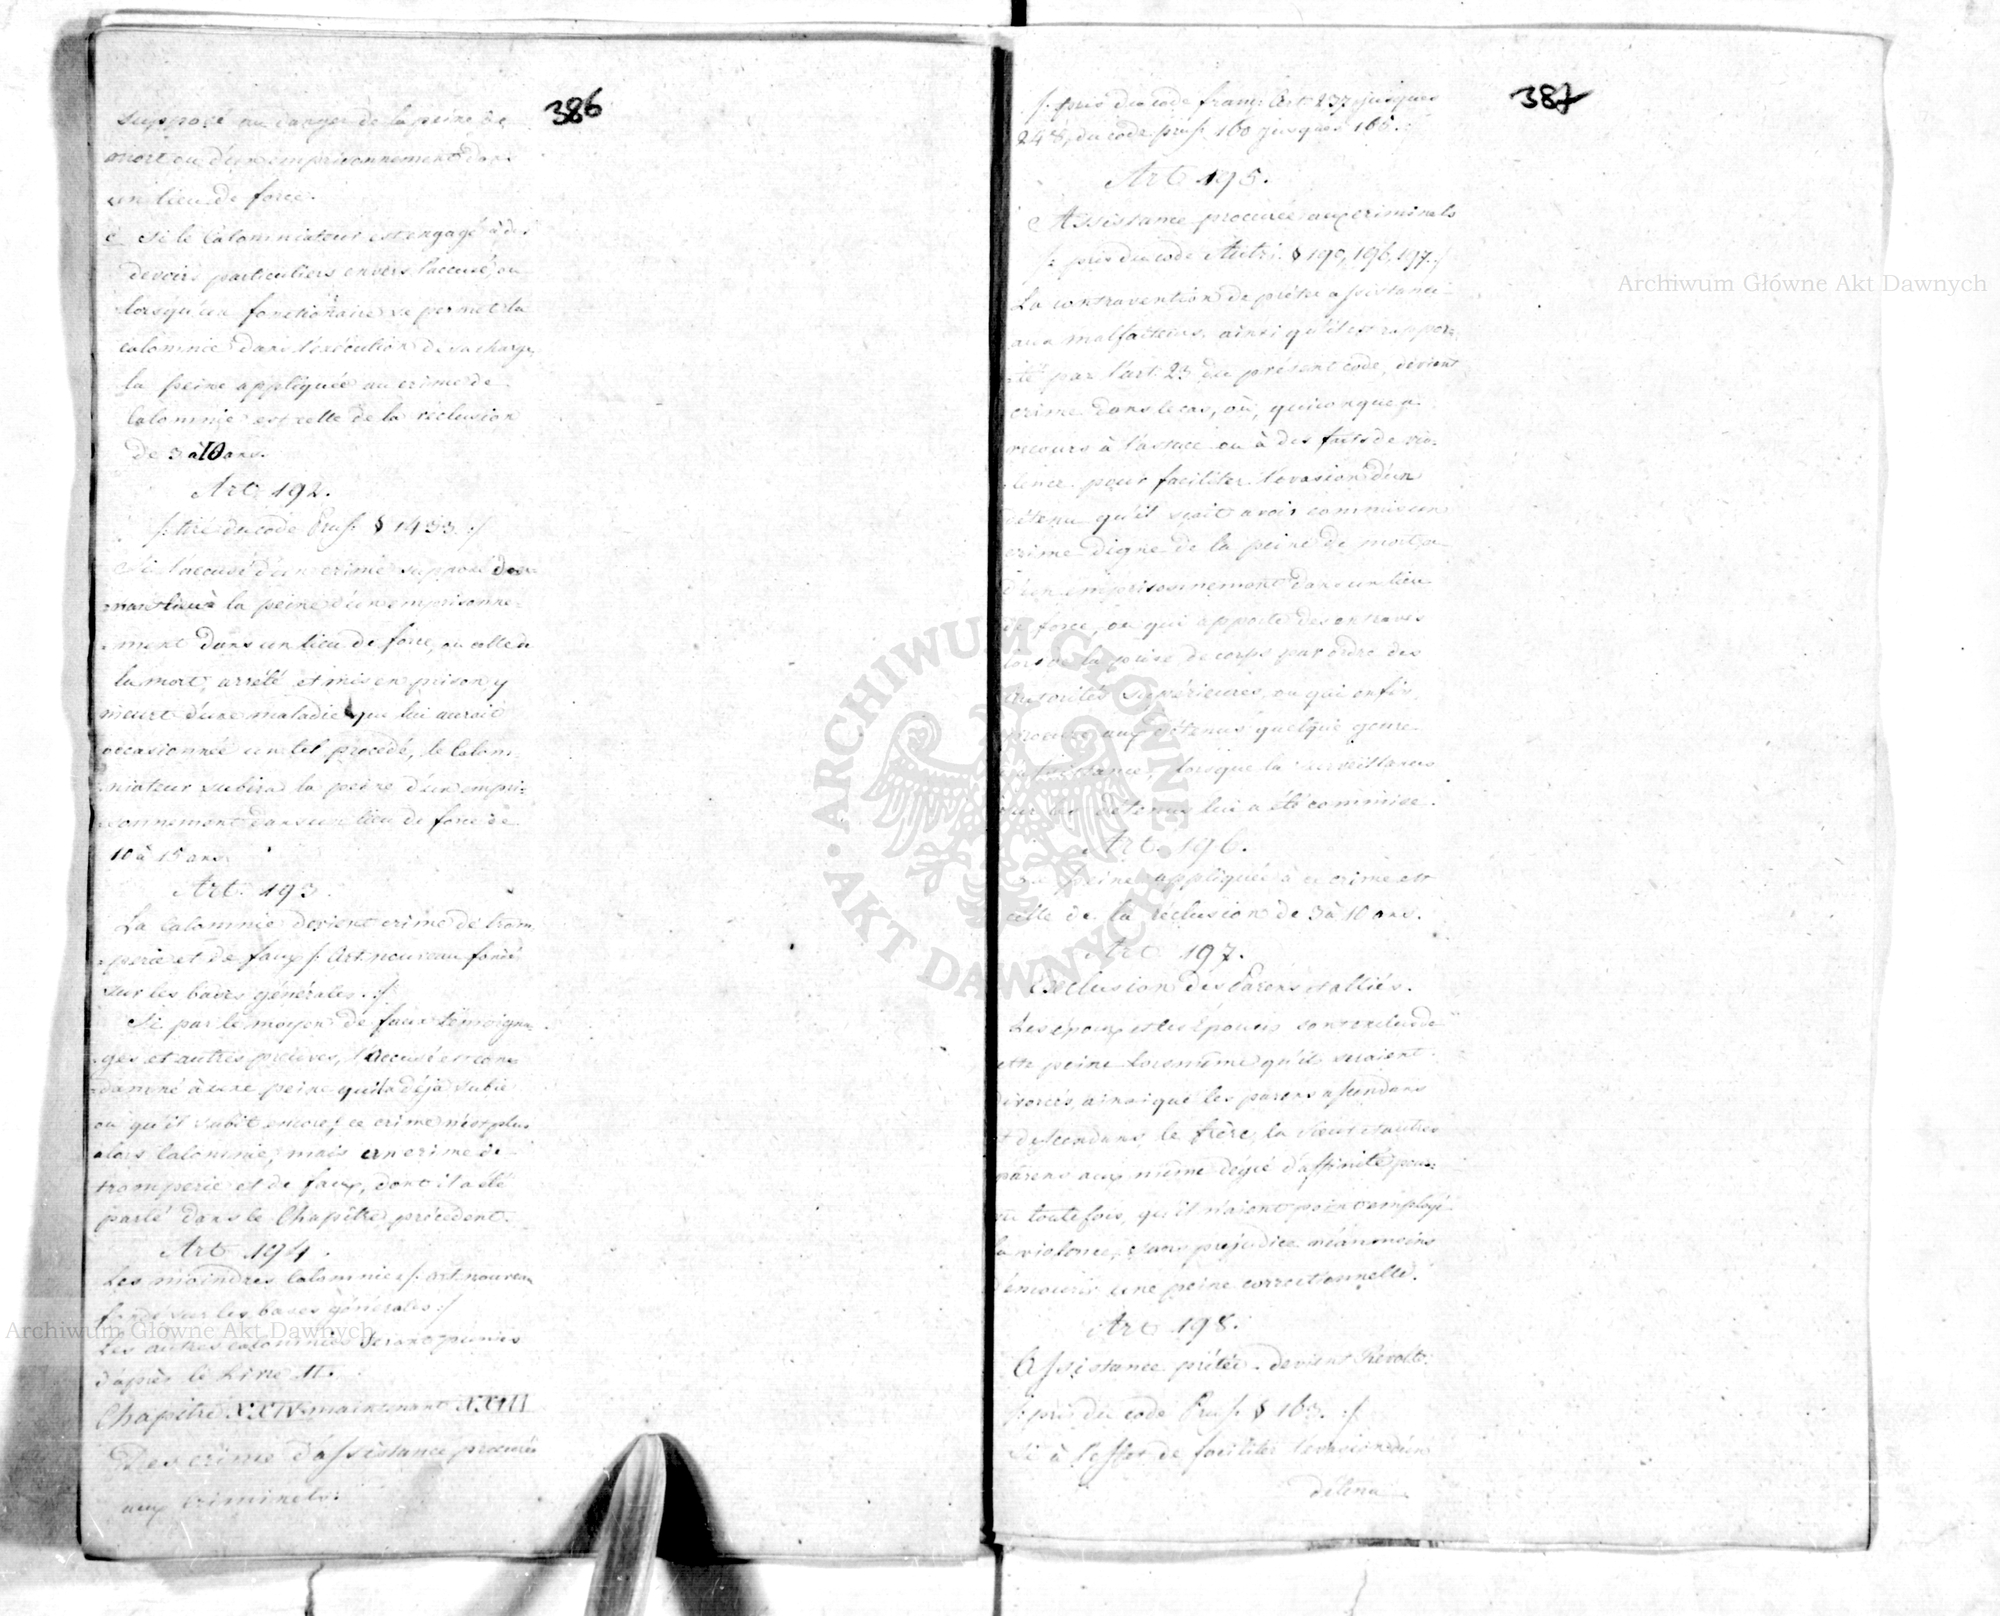 386
supposé au danger de la peine de
mort ou d'un emprisonnement dans
un lieu de force.
c Si le Calomniateur est engagé à des
devoirs particuliers envers l'accusé, ou
lorsqu'un fonctionaire se permet la
calomnie dans l'exécution de sa charge,
la peine appliquée au crime de
Calomnie est celle de la réclusion
de 3 à 10 ans.
Art. 192.
/: tiré du code Prus. § 1433. :/
Si l'accusé d'un crime supposé don-
nant lieu à la peine d'un emprisonne-
-ment dans un lieu de force, ou celle de
la mort, arrêté et mis en prison, y
meurt d'une maladie que lui aurait
occasionnée un tel procédé, le Calom-
niateur subira la peine d'un empri-
sonnement dans un lieu de force de
10 à 15 ans.
Art. 193.
La Calomnie devient crime de trom-
-perie et de faux /: Art. nouveau fondé
sur les bases générales. :/
Si par le moyen de faux témoigna-
-ges et autres preuves, l'accusé est con-
-damné à une peine qu'il a déjà subie
ou qu'il subit encore, ce crime n'est plus
alors Calomnie, mais un crime de
tromperie et de faux, dont il a été
parlé dans le Chapitre précédent.
Art. 194.
Les moindres Calomnies /: art. nouveau
fondé sur les bases générales :/
Les autres calomnies seront punies
d'après le Livre II.
Chapitre XXIV maintenant XXIII
Des crime d'assistance procurée
aux criminels.
387
/: pris du code franç. Art. 237 jusques
248, du code prus. 160 jusques 165. :/
Art. 195.
Assistance procurée aux criminels
/: pris du code Autri. § 190, 196, 197. :/
La contravention de prêter assistance
aux malfaiteurs, ainsi qu'il est rappor-
-té par l'art. 23 du présent code, devient
crime dans le cas, où, quiconque a
recours à l'astuce ou à des faits de vio-
-lence pour faciliter l'évasion d'un
détenu qu'il sçait avoir commis un
crime digne de la peine de mort,
d'un emprisonnement dans un lieu
de force, ou qui apporte des entraves
lors de la prise de corps par ordre des
autorités supérieures, ou qui enfin,
procure aux détenus quelque genre
assistance, lorsque la surveillance
sur les détenus lui a été commise.
Art. 196.
La peine appliquée à ce crime est
celle de la réclusion de 3 à 10 ans.
Art. 197.
Exclusion des Parens et alliés.
Les époux et les épouses sont exclus de
cette peine lors même qu'ils seraient
divorcés, ainsi que les parens ascendans
et descendans, le frère, la sœur et autres
parens aux même degré d'affinité pour-
vu toutefois, qu'ils n'aient point employé
la violence, sans préjudice néanmoins
d'encourir une peine correctionnelle.
Art. 198.
Assistance prêtée devient Révolte.
/: pris du code Prus. § 163. :/
Si à l'effet de faciliter l'évasion d'un
détenu
Archiwum Główne Akt Dawnych
Archiwum Główne Akt Dawnych
ARCHIWUM GŁÓWNE · AKT DAWNYCH ·